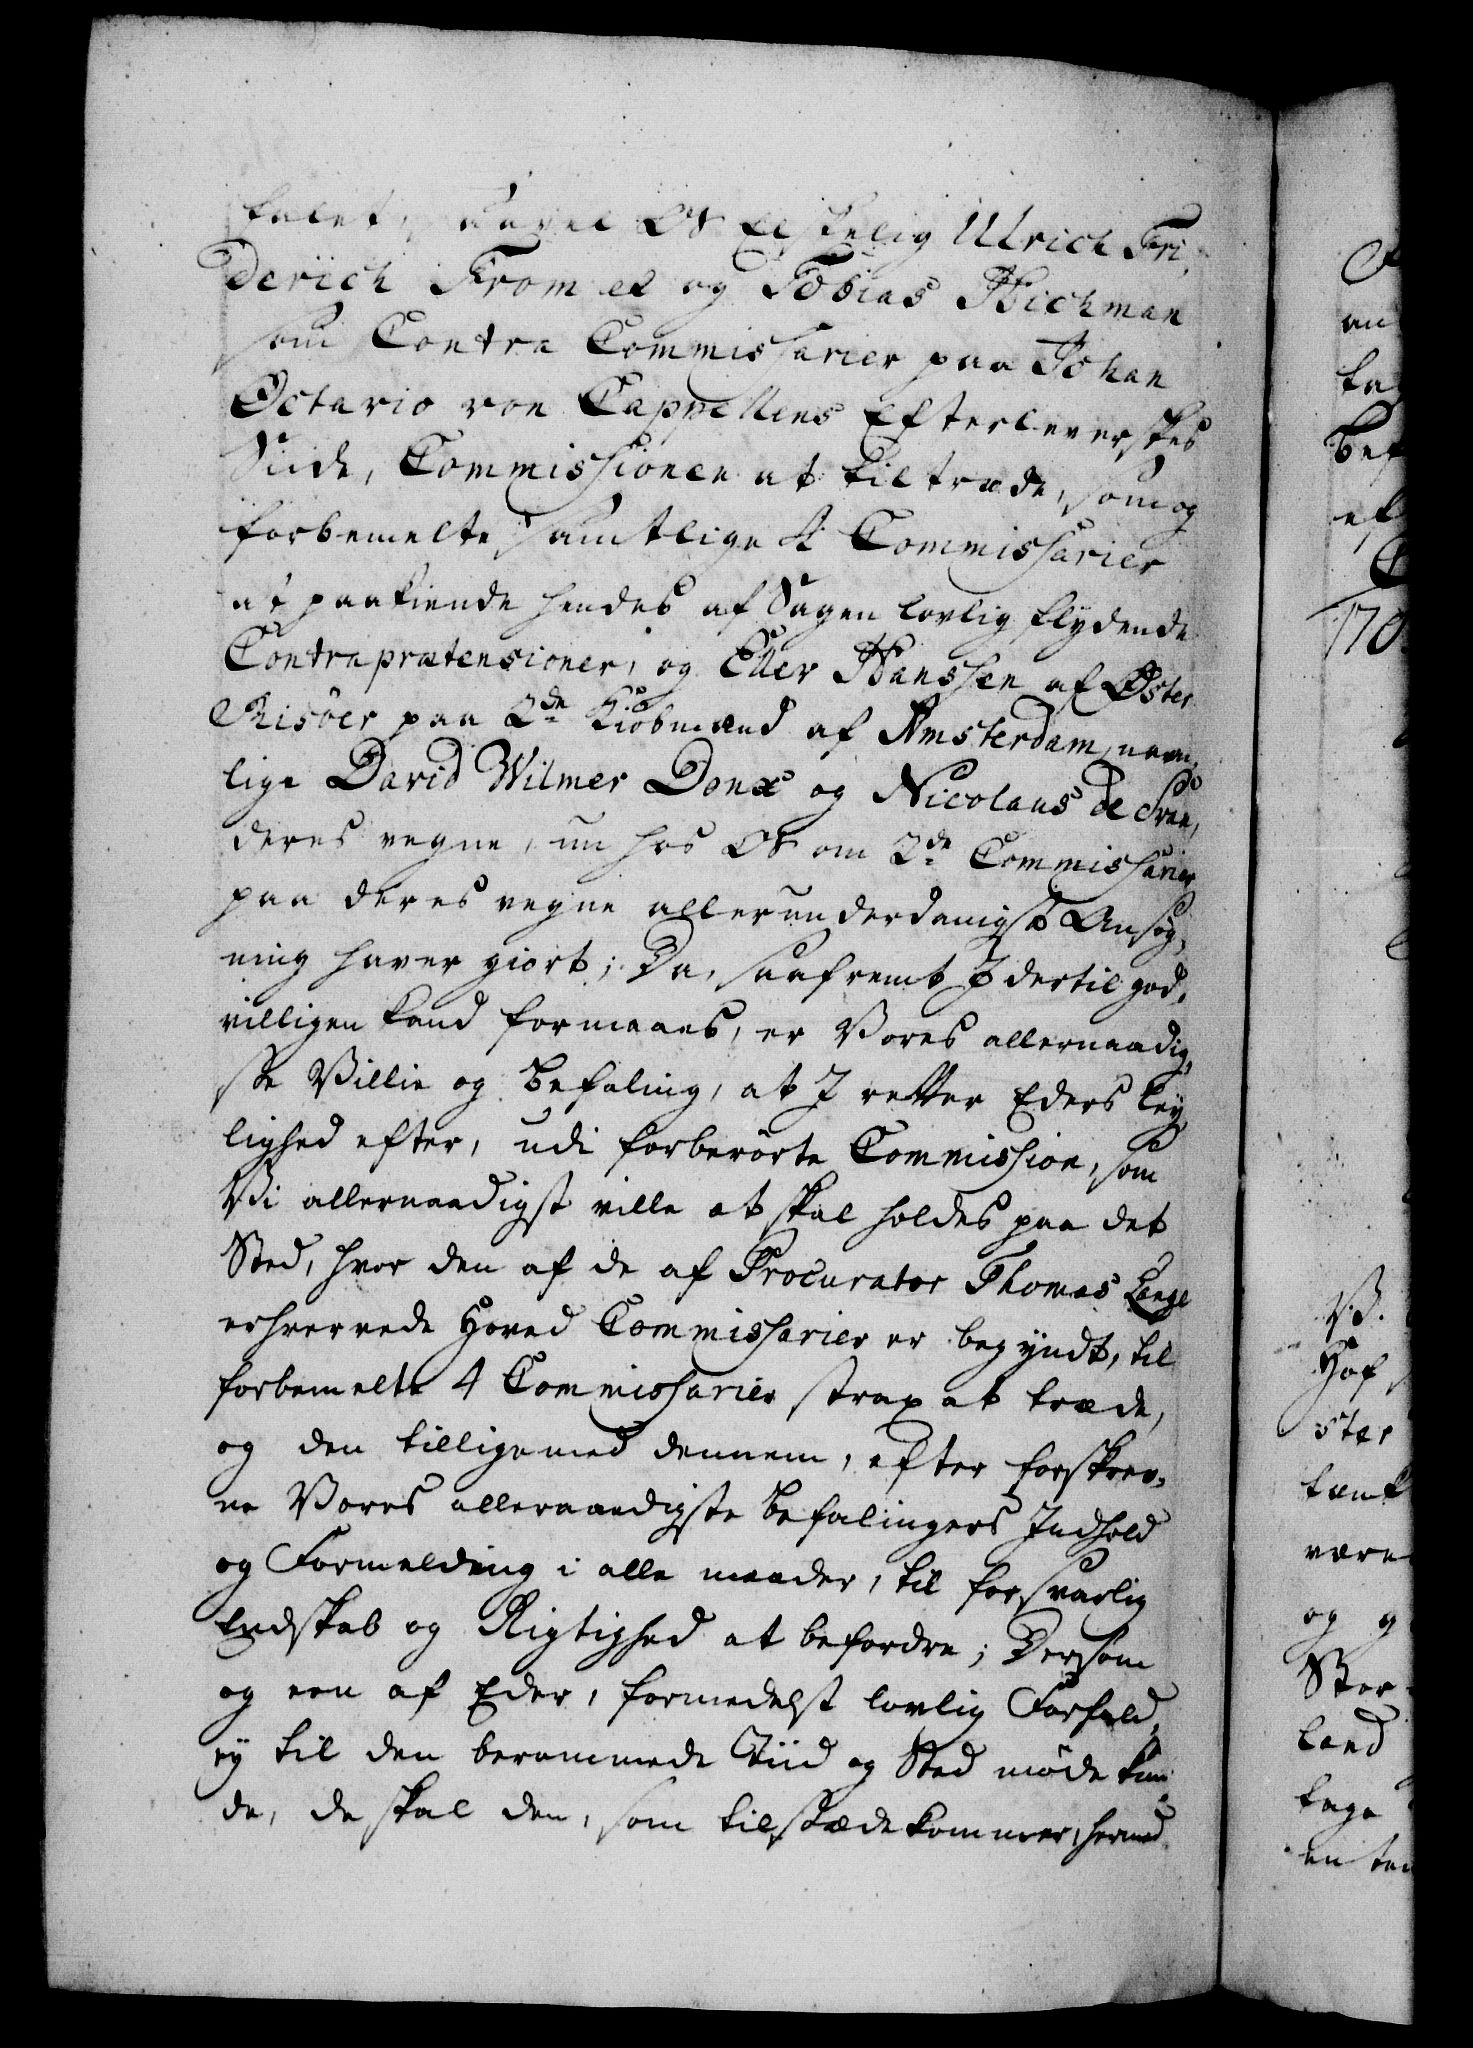 falet, saavel Os Elskelig Ulrich Fri,
derich Fromel og Tobias Bichman
som Contra Commissarier paa Johan
Octavio von Cappellens Efterleverskes
Side, Commissionen at tiltræde, som og
forbemelte samtlige 4 Commissarier
at paakiende hendes af Sagen lovlig flydende
Contraprætensioner, og Eller Hanssen af Øster
Risöer paa 2de Kiöbmænd af Amsterdam, navn,
lige David Wilmer Donx og Nicolaus de
deres vegne, nu hos Os om 2de Commissarier
paa deres vegne allerunderdanigst Ansög,
ning haver giort; Da, saafremt I dertil god,
villigen kand formaaes, er Vores allernaadig,
ste Villie og Befaling, at I retter Eders Ley,
lighed efter, udi forberörte Commission, som
Vi allernaadigst ville at skal holdes paa det
Sted, hvor den af de af Procurator Thomas Lange
erhvervede Hoved Commissarier er begyndt, til
forbemelte 4 Commissarier strax at træde,
og den tilligemed dennem, efter forskrev,
ne Vores allernaadigste Befalingers Indhold
og Formelding i alle maader, til forsvarlig
Endskab og Rigtighed at befordre; Dersom
og een af Eder, formedelst lovlig Forfald,
ey til den berammede Tiid og Sted möde kun,
de, da skal den, som tilstæde kommer, hermed